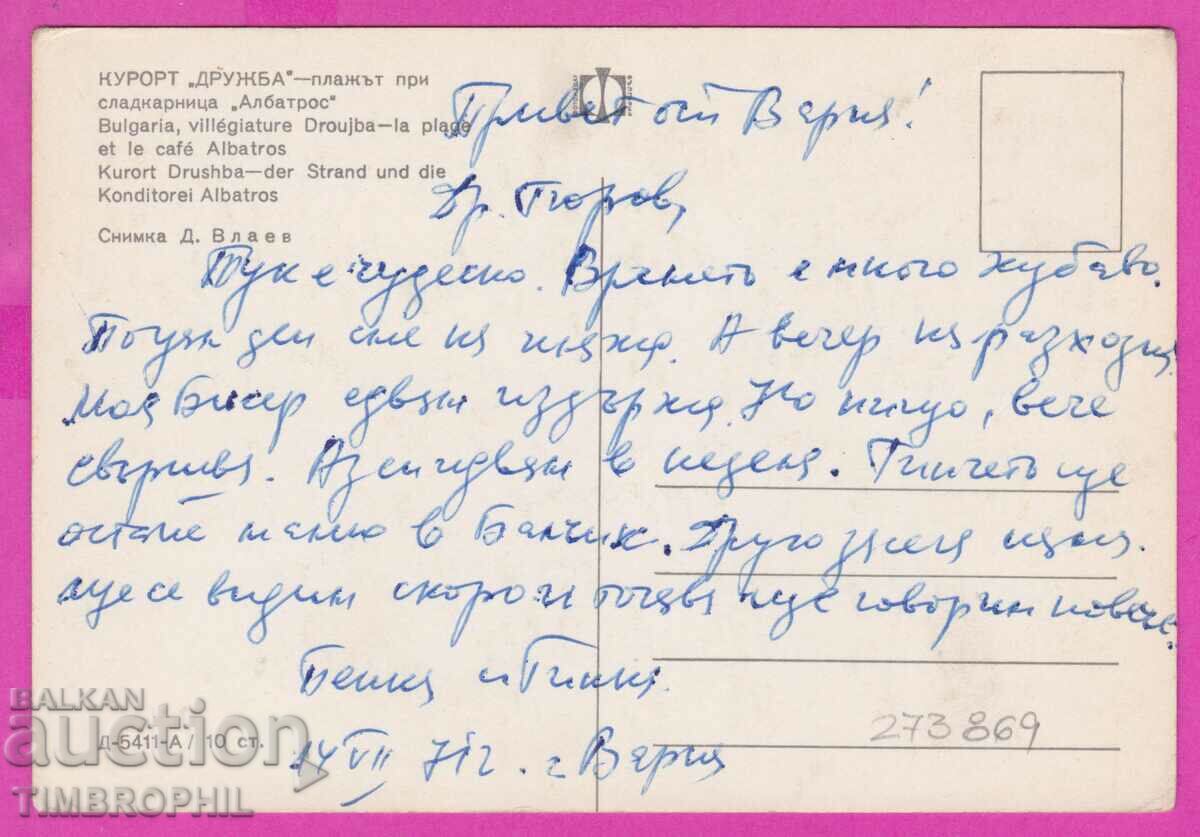 КУРОРТ „ДРУЖБА“—плажът при
сладкарница „Албатрос“
Bulgaria, villégiature Droujba—la plage
et le café Albatros
Kurort Drushba—der Strand und die
Konditorei Albatros
Снимка Д. Влаев
Привет от Варна!
Др.
Тук е чудесно. Времето е много хубаво.
По цял ден сме на плажа. А вечер на разходка
Моя Бисер едвам издържа. Но нищо, вече
свършва. Аз си идвам в неделя. Гинчето ще
остане малко в Балчик. Друго засега няма.
ще се видим скоро и тогава ще говорим повече.
Пенка и Гинка
14 VII 71 г. г. Варна
Д-5411-А / 10 ст.
273869
BALKAN
auction
TIMBROPHIL